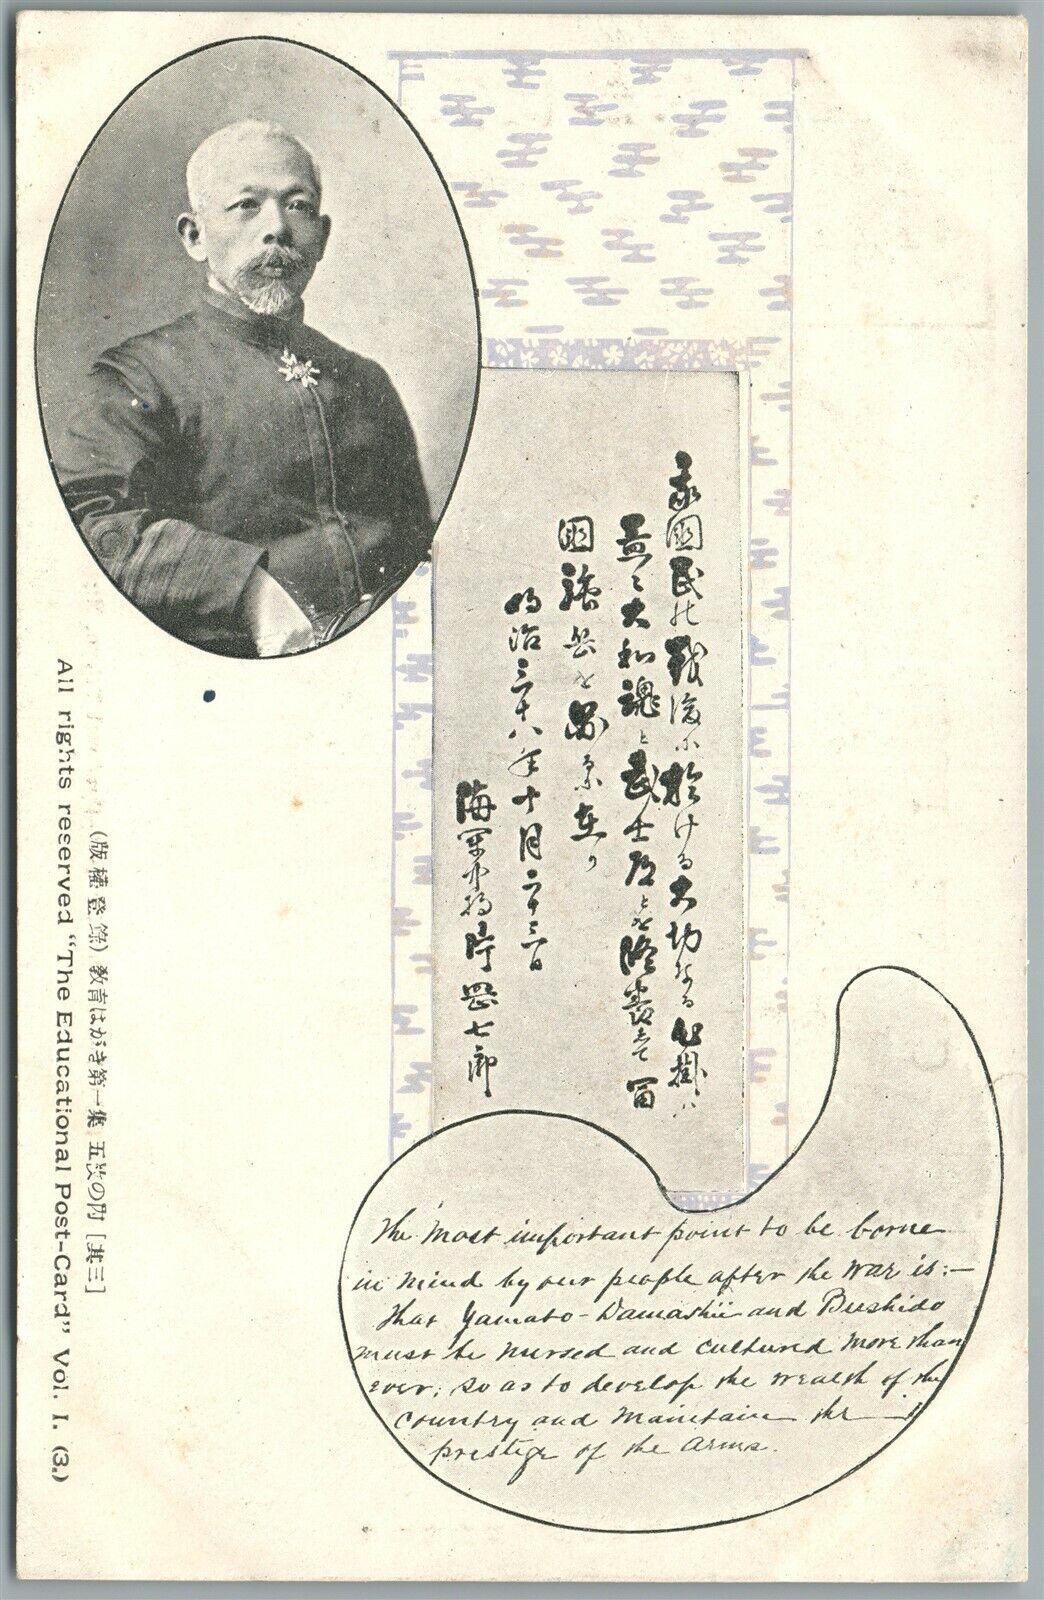 我國民の戰後に於ける大切なる心掛は
益々大和魂と武士道とを隆養して富
國強兵を
明治三十八年十月二十三日
海軍中将 時岡七郎
The most important point to be borne
in mind by our people after the war is:—
That Yamato-Damashii and Bushido
must be nursed and cultured more than
ever; so as to develop the wealth of the
country and maintain the
prestige of the arms.
(版權登錄) 教育はがき第一集 五　の內 [其三]
All rights reserved "The Educational Post-Card" Vol. I. (3.)